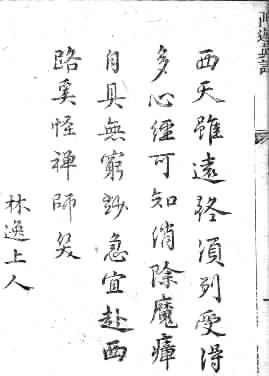 西天雖遠終須列受得
多心經可知消除魔瘴
自具無窮妙急宜赴西
路奚怪禅師笑
林逸上人